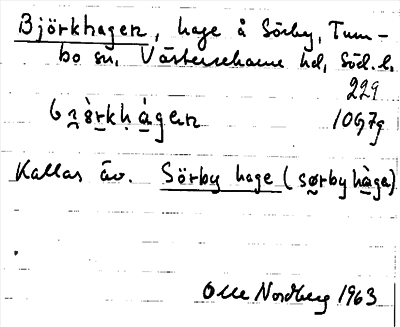 Björkhagen, hage å Sörby, Tum-
bo sn, Västerrekarne hd, Söd. l.
229
1097g
Kallas äv. Sörby hage (sørby hàga)
Olle Nordberg 1963